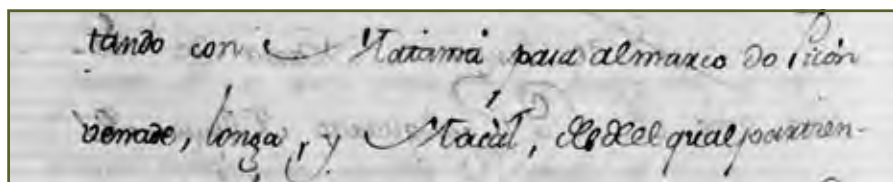 tando con Natamá para al marco do
venade, longa, y Nacàl, desdel qual partien-